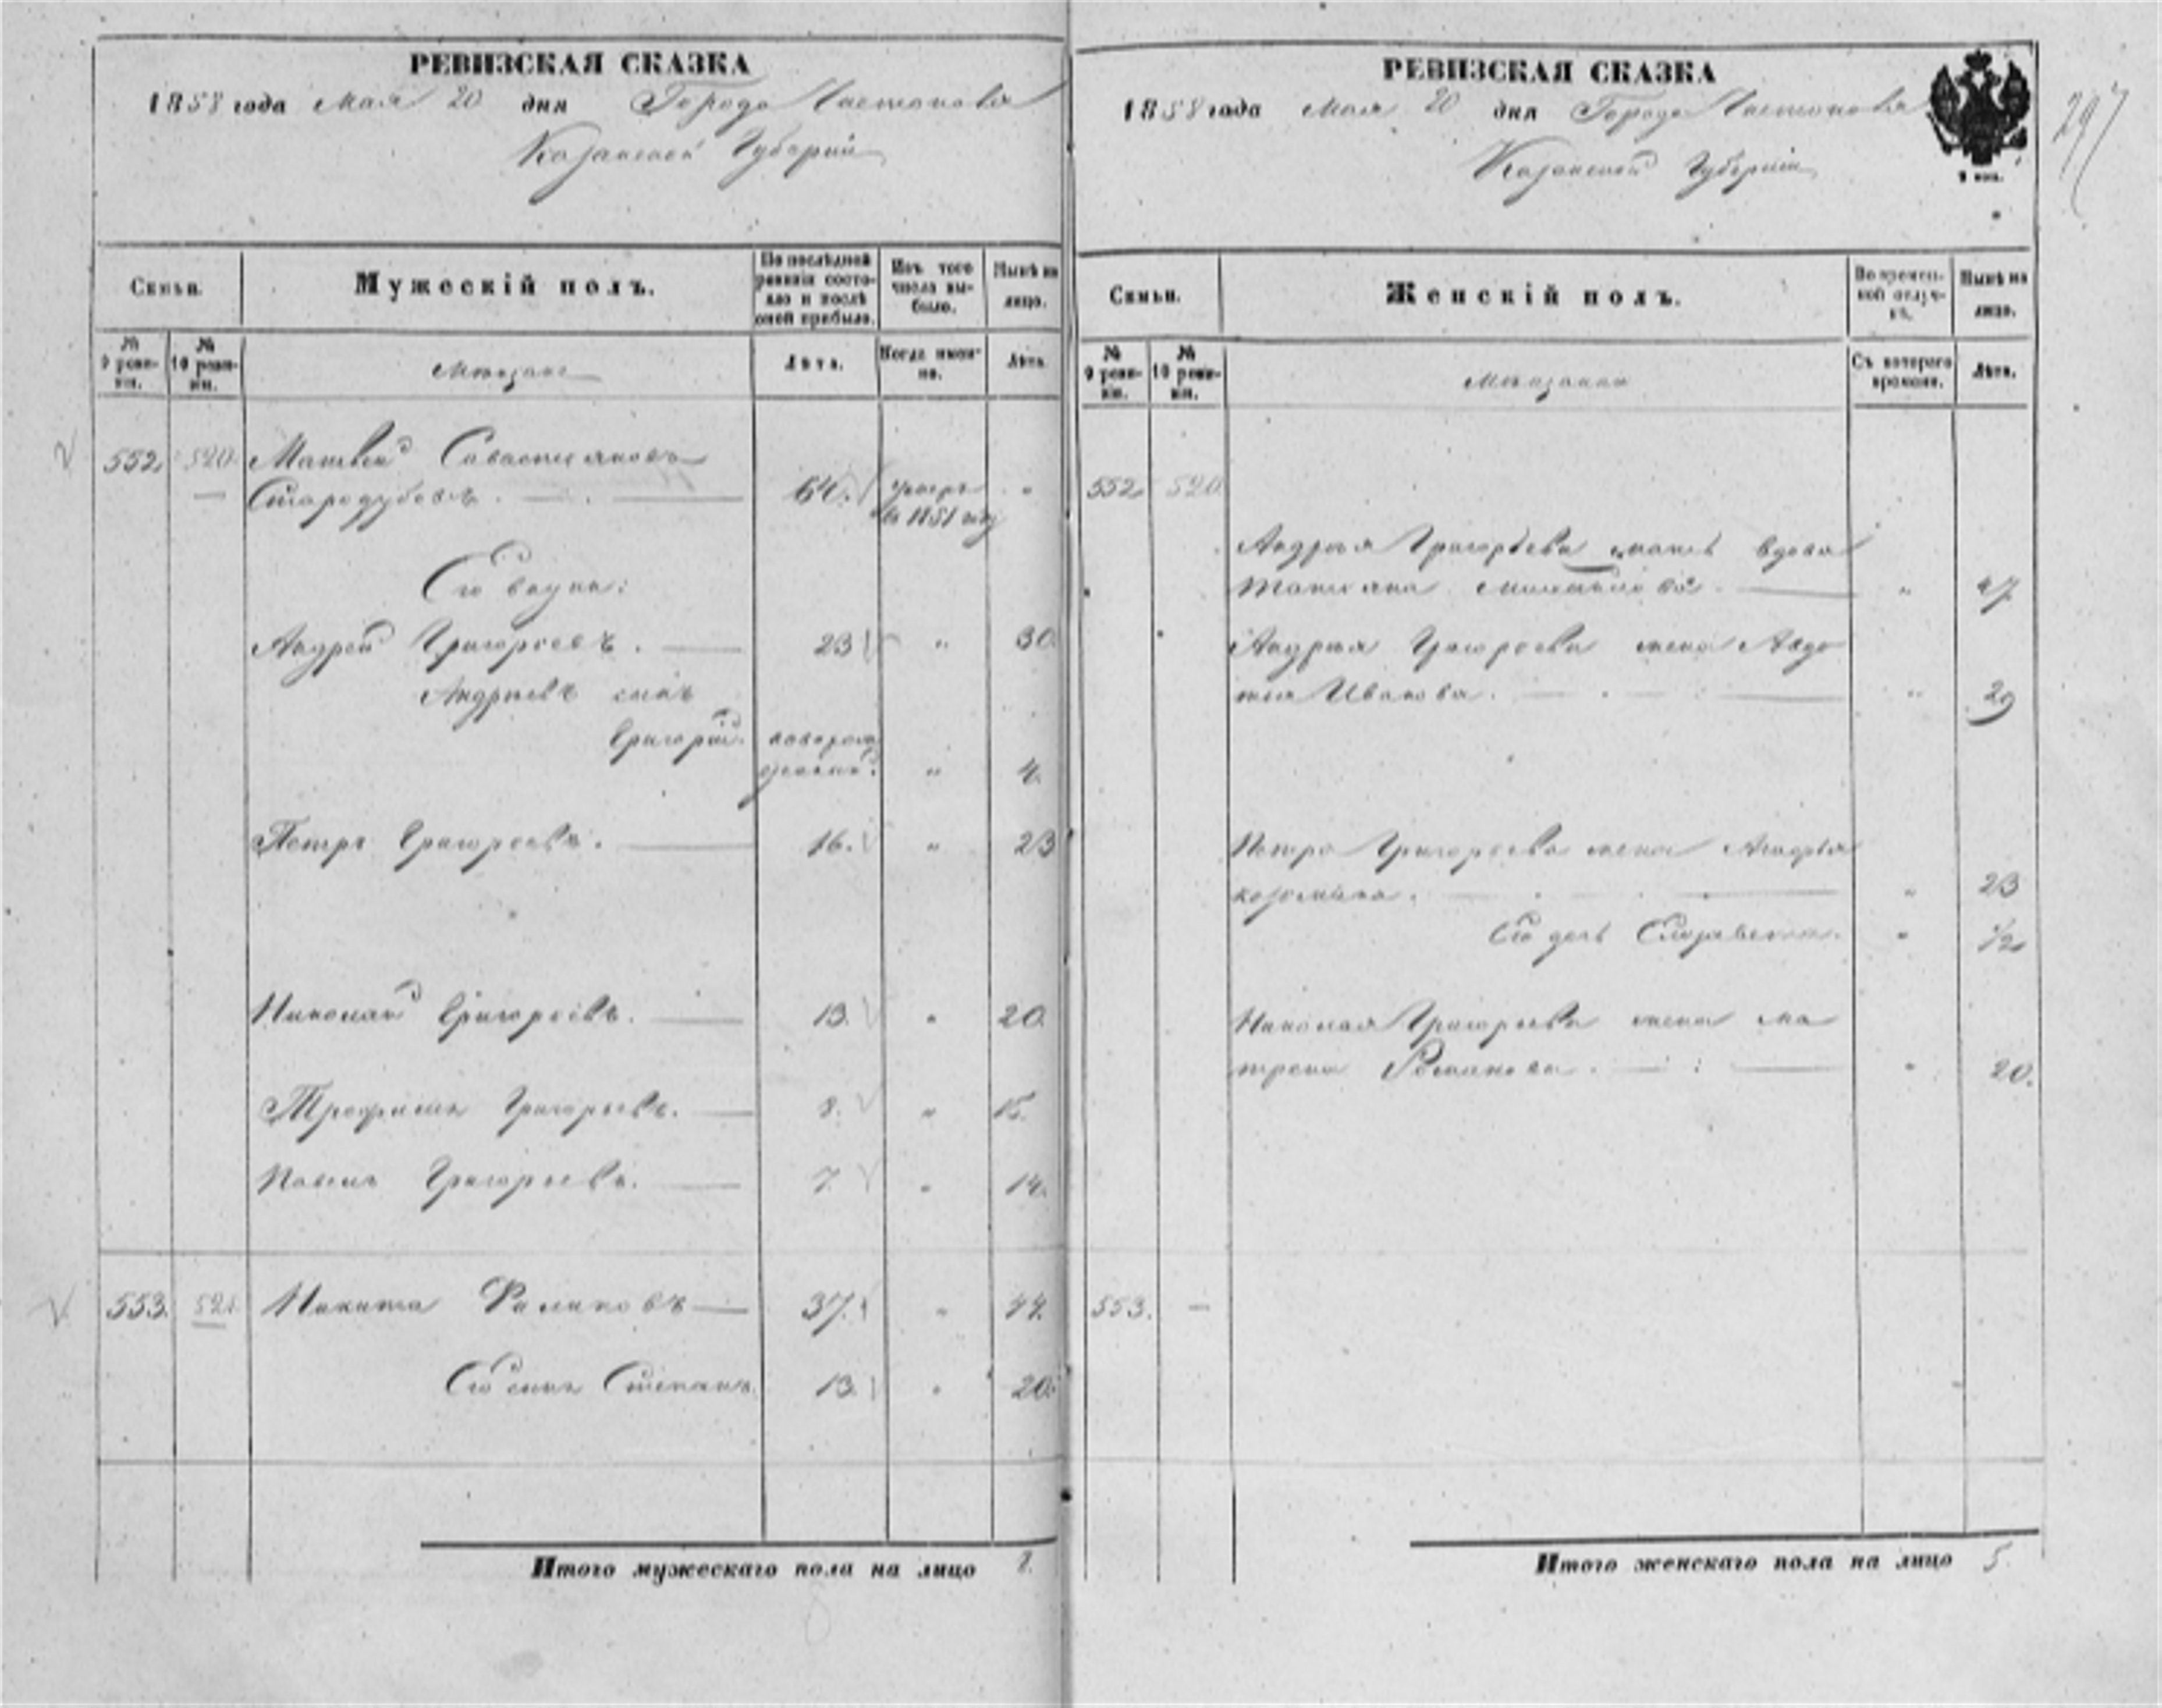 РЕВИЗСКАЯ СКАЗКА
1858 года Мая 20 дня Города Чистополя
Казанской Губернии
Семьи.
Мужескій полъ.
По последней ревизіи состояло и послѣ оной прибыло.
Изъ того числа выбыло.
Нынѣ на лицо.
№ 9 ревизіи.
№ 10 ревизіи.
Мещане
Лѣта.
Когда именно.
Лѣта.
552. 520. Матвей Савастьяновъ
Стародубовъ. 64. умеръ
въ 1851 году
Его внуки:
Андрей Григорьевъ. 23 " 30.
Андреевъ сынъ
Григорій. новорож
денный. " 4.
Петръ Григорьевъ. 16. " 23
Николай Григорьевъ. 13. " 20.
Трофимъ Григорьевъ. 8. " 15.
Павелъ Григорьевъ. 7. " 14.
553. 521. Никита Филиповъ 37. " 44.
Его сынъ Степанъ. 13. " 20.
Итого мужескаго пола на лицо 8.
РЕВИЗСКАЯ СКАЗКА
1858 года Мая 20 дня Города Чистополя
Казанской Губерніи
297
Семьи.
Женскій полъ.
Во временной отлучкѣ.
Нынѣ на лицо.
№ 9 ревизіи.
№ 10 ревизіи.
Мещанки
Съ котораго времени.
Лѣта.
552. 520.
Андрея Григорьева мать вдова
Татьяна " 47
Андрея Григорьева жена Авдо
тья Иванова. " 29
Петра Григорьева жена
Козмина. " 23
Его дочь Елизавета. " 1/2
Николая Григорьева жена Ма
трена Романова. " 20.
553. —
Итого женскаго пола на лицо 5